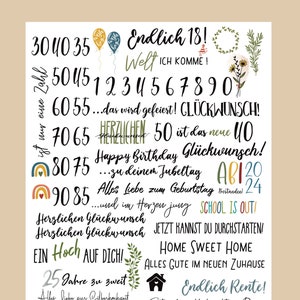 30 40 35
Endlich 18!
50 45
Welt ICH KOMME!
ist nur eine Zahl
1 2 3 4 5 6 7 8 9 0
60 55
...das wird gefeiert! GLÜCKWUNSCH!
70 65
HERZLICHEN
50 ist das neue 40
Glückwunsch!
80 75
Happy Birthday
...zu deinem Jubeltag
ABI 2024
Bestanden!
90 85
Alles Liebe zum Geburtstag
...und im Herzen jung
SCHOOL IS OUT!
Herzlichen Glückwunsch
Herzlichen Glückwunsch
JETZT KANNST DU DURCHSTARTEN!
EIN Hoch AUF DICH!
HOME SWEET HOME
ALLES GUTE IM NEUEN ZUHAUSE
25 Jahre zu zweit
Endlich Rente!